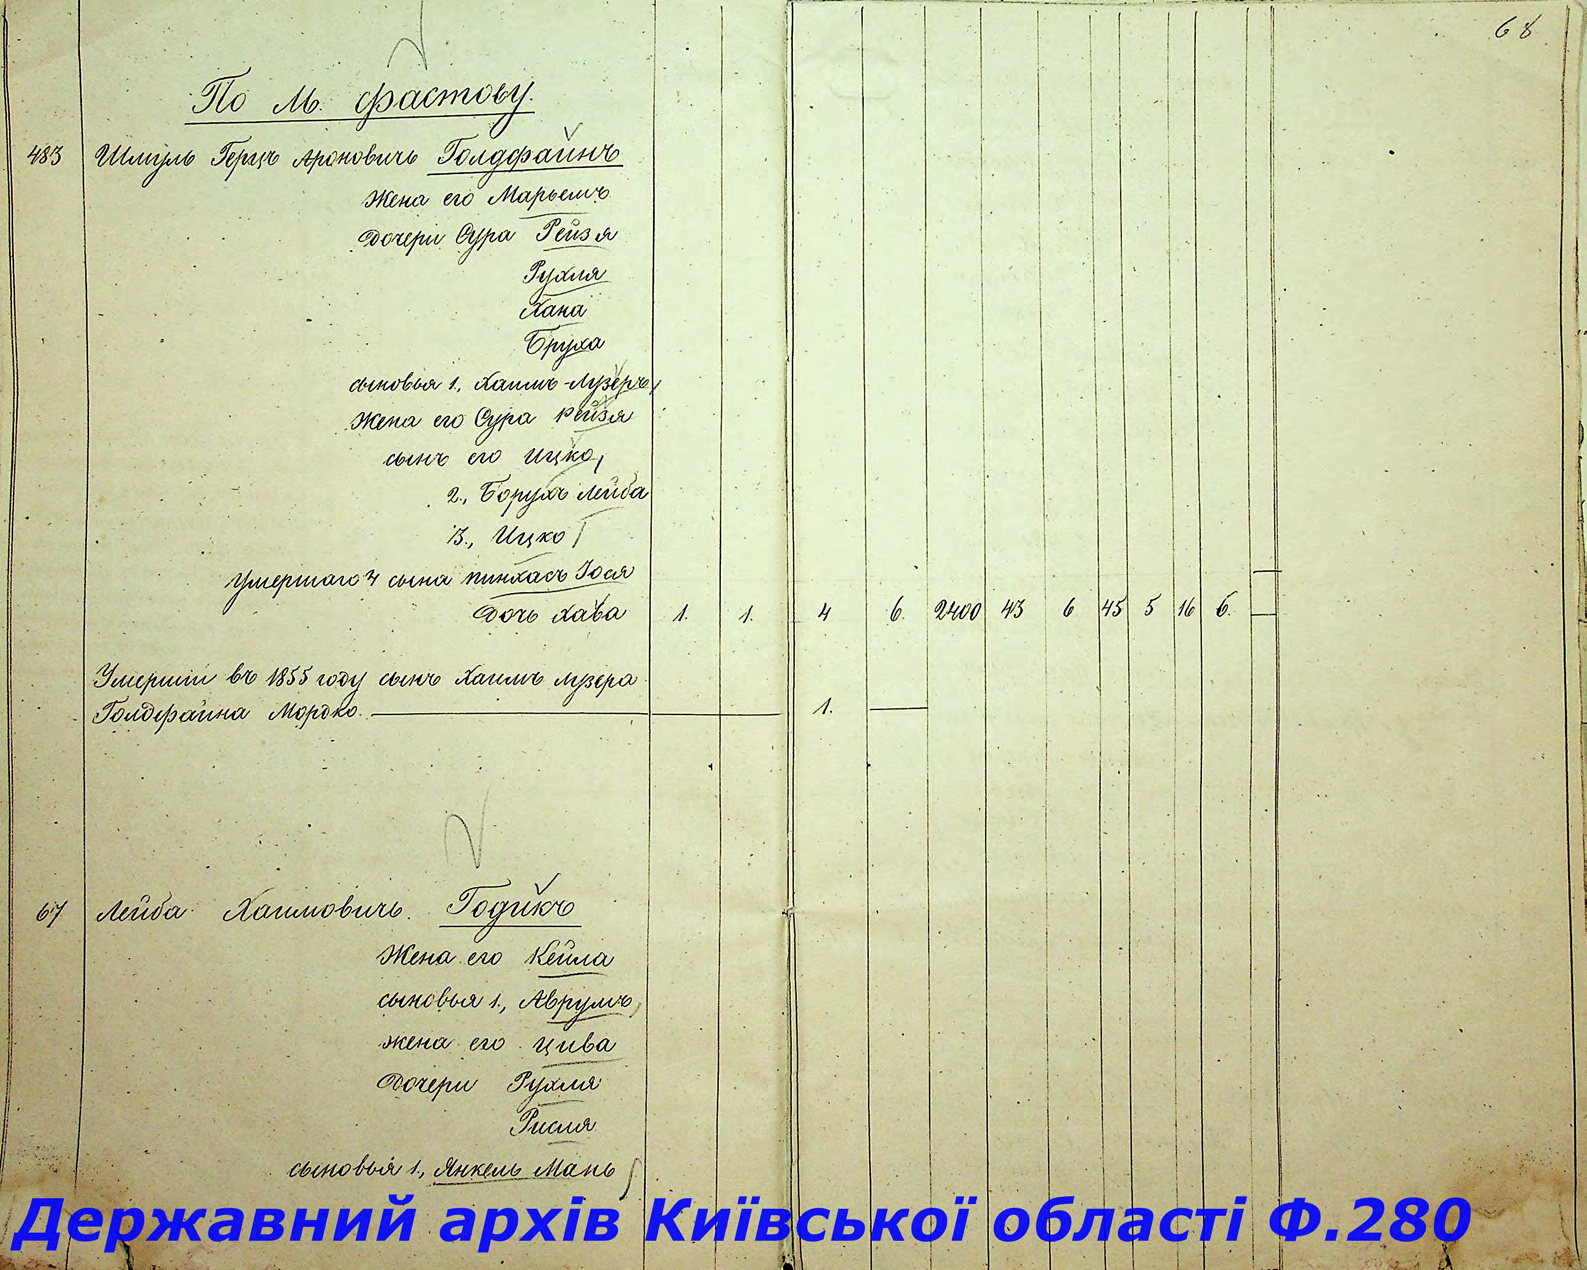 68
По М. Фастову.
483 Шмуль Герцъ Ароновичъ Голдфайнъ
Жена его Марьемъ
Дочери Сура Рейзя
Рухля
Хана
Бруха
сыновья 1, Хаимъ-Лузеръ,
Жена его Сура Рейзя
сынъ его Ицко,
2., Борухъ Лейба
3., Ицко
Умершаго 4 сына Пинхасъ Іося
Дочь Хава 1. 1. 4 6. 2400 43 6 45 5 16 6.
Умершій въ 1855 году сынъ Хаимъ Лузера
Голдфайна Мордко. 1.
67 Лейба Хаимовичъ. Годикъ
Жена его Кейла
сыновья 1., Аврумъ,
жена его Цива
Дочери Рухля
Рисля
сыновья 1., Янкель Мань
Державний архів Київської області Ф.280